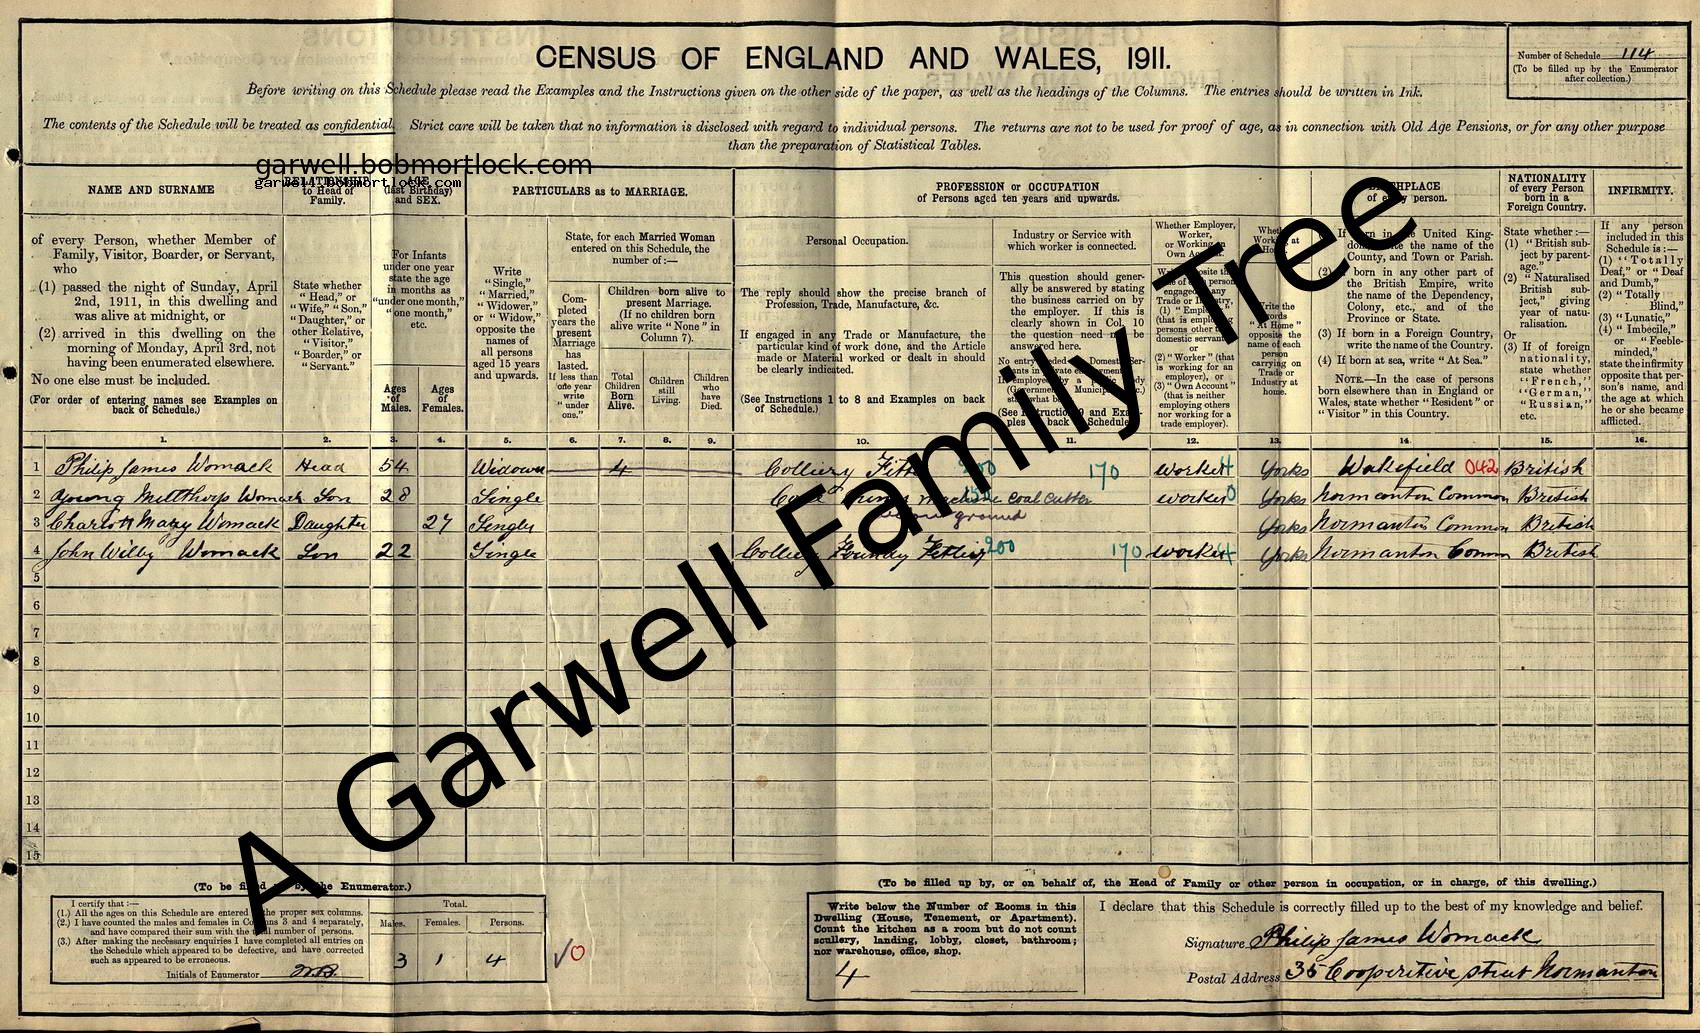 CENSUS OF ENGLAND AND WALES, 1911.
Number of Schedule 114
(To be filled up by the Enumerator
after collection.)
Before writing on this Schedule please read the Examples and the Instructions given on the other side of the paper, as well as the headings of the Columns. The entries should be written in Ink.
The contents of the Schedule will be treated as confidential. Strict care will be taken that no information is disclosed with regard to individual persons. The returns are not to be used for proof of age, as in connection with Old Age Pensions, or for any other purpose
than the preparation of Statistical Tables.
garwell.bobmortlock.com
garwell.bobmortlock.com
NAME AND SURNAME
RELATIONSHIP
to Head of
Family.
AGE
(last Birthday)
and SEX.
PARTICULARS as to MARRIAGE.
PROFESSION or OCCUPATION
of Persons aged ten years and upwards.
BIRTHPLACE
of every person.
NATIONALITY
of every Person
born in a
Foreign Country.
INFIRMITY.
of every Person, whether Member of
Family, Visitor, Boarder, or Servant,
who
(1) passed the night of Sunday, April
2nd, 1911, in this dwelling and
was alive at midnight, or
(2) arrived in this dwelling on the
morning of Monday, April 3rd, not
having been enumerated elsewhere.
No one else must be included.
(For order of entering names see Examples on
back of Schedule.)
State whether
"Head," or
"Wife," "Son,"
"Daughter," or
other Relative,
"Visitor,"
"Boarder," or
"Servant."
For Infants
under one year
state the age
in months as
"under one month,"
"one month,"
etc.
Ages
of
Males.
Ages
of
Females.
Write
"Single,"
"Married,"
"Widower,"
or "Widow,"
opposite the
names of
all persons
aged 15 years
and upwards.
State, for each Married Woman
entered on this Schedule, the
number of:—
Completed
years the
present
Marriage
has
lasted.
If less than
one year
write
"under
one."
Children born alive to
present Marriage.
(If no children born
alive write "None" in
Column 7).
Total
Children
Born
Alive.
Children
still
Living.
Children
who
have
Died.
Personal Occupation.
The reply should show the precise branch of
Profession, Trade, Manufacture, &c.
If engaged in any Trade or Manufacture, the
particular kind of work done, and the Article
made or Material worked or dealt in should
be clearly indicated.
(See Instructions 1 to 8 and Examples on back
of Schedule.)
Industry or Service with
which worker is connected.
This question should generally
be answered by stating
the business carried on by
the employer. If this is
clearly shown in Col. 10
the question need not be
answered here.
Whether Employer,
Worker,
or Working on
Own Account.
(2) "Worker" (that
is working for an
employer), or
(3) "Own Account"
(that is neither
employing others
nor working for a
trade employer).
Write the
words
"At Home"
opposite the
name of each
person
carrying on
Trade or
Industry at
home.
County, and Town or Parish.
the British Empire, write
the name of the Dependency,
Colony, etc., and of the
Province or State.
(3) If born in a Foreign Country,
write the name of the Country.
(4) If born at sea, write "At Sea."
NOTE.—In the case of persons
born elsewhere than in England or
Wales, state whether "Resident" or
"Visitor" in this Country.
State whether:—
(1) "British subject
by parentage."
(2) "Naturalised
British
subject," giving
year of naturalisation.
Or
(3) If of foreign
nationality,
state whether
"French,"
"German,"
"Russian,"
etc.
If any person
included in this
Schedule is:—
(1) "Totally
Deaf," or "Deaf
and Dumb,"
(2) "Totally
Blind,"
(3) "Lunatic,"
(4) "Imbecile,"
or "Feeble-
minded,"
state the infirmity
opposite that person's
name, and
the age at which
he or she became
afflicted.
1. 2. 3. 4. 5. 6. 7. 8. 9. 10. 11. 12. 13. 14. 15. 16.
1 Philip James Womack Head 54 Widower 4 Colliery 200 170 worker Yorks Wakefield 042 British
2 Young Millthorp Womack Son 28 Single machine coal cutter worker Yorks Normanton Common British
ground
3 Charlott Mary Womack Daughter 27 Single Yorks Normanton Common British
4 John Wilby Womack Son 22 Single Colliery 200 170 worker Yorks Normanton Common British
5
6
7
8
9
10
11
12
13
14
15
A Garwell Family Tree
(To be filled up by the Enumerator.)
I certify that:—
(1.) All the ages on this Schedule are entered in the proper sex columns.
(2.) I have counted the males and females in Columns 3 and 4 separately,
and have compared their sum with the total number of persons.
(3.) After making the necessary enquiries I have completed all entries on
the Schedule which appeared to be defective, and have corrected
such as appeared to be erroneous.
Initials of Enumerator
Total.
Males. Females. Persons.
3 1 4
(To be filled up by, or on behalf of, the Head of Family or other person in occupation, or in charge, of this dwelling.)
Write below the Number of Rooms in this
Dwelling (House, Tenement, or Apartment).
Count the kitchen as a room but do not count
scullery, landing, lobby, closet, bathroom;
nor warehouse, office, shop.
4
I declare that this Schedule is correctly filled up to the best of my knowledge and belief.
Signature Philip James Womack
Postal Address 35 Cooperitive street Normanton